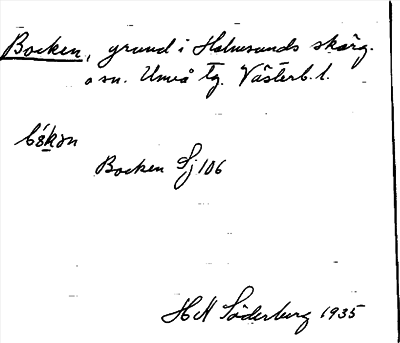 Bocken, grund i Holmsunds skärg.
o sn. Umeå tg. Västerb. l.
bókən
Bocken Sj 106
H Söderberg 1935